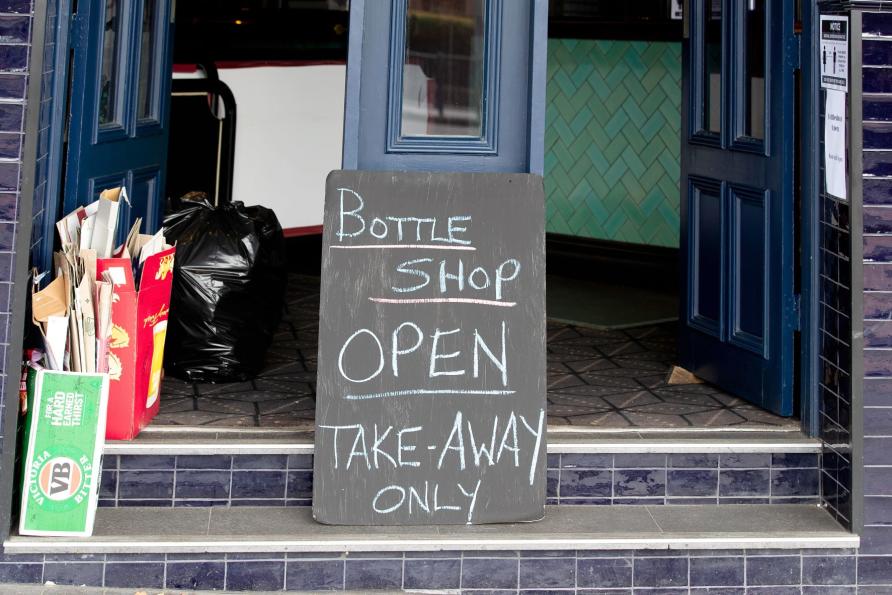 BOTTLE
SHOP
OPEN
TAKE-AWAY
ONLY
FOR A
HARD
EARNED
THIRST
VICTORIA
VB
BITTER
NOTICE